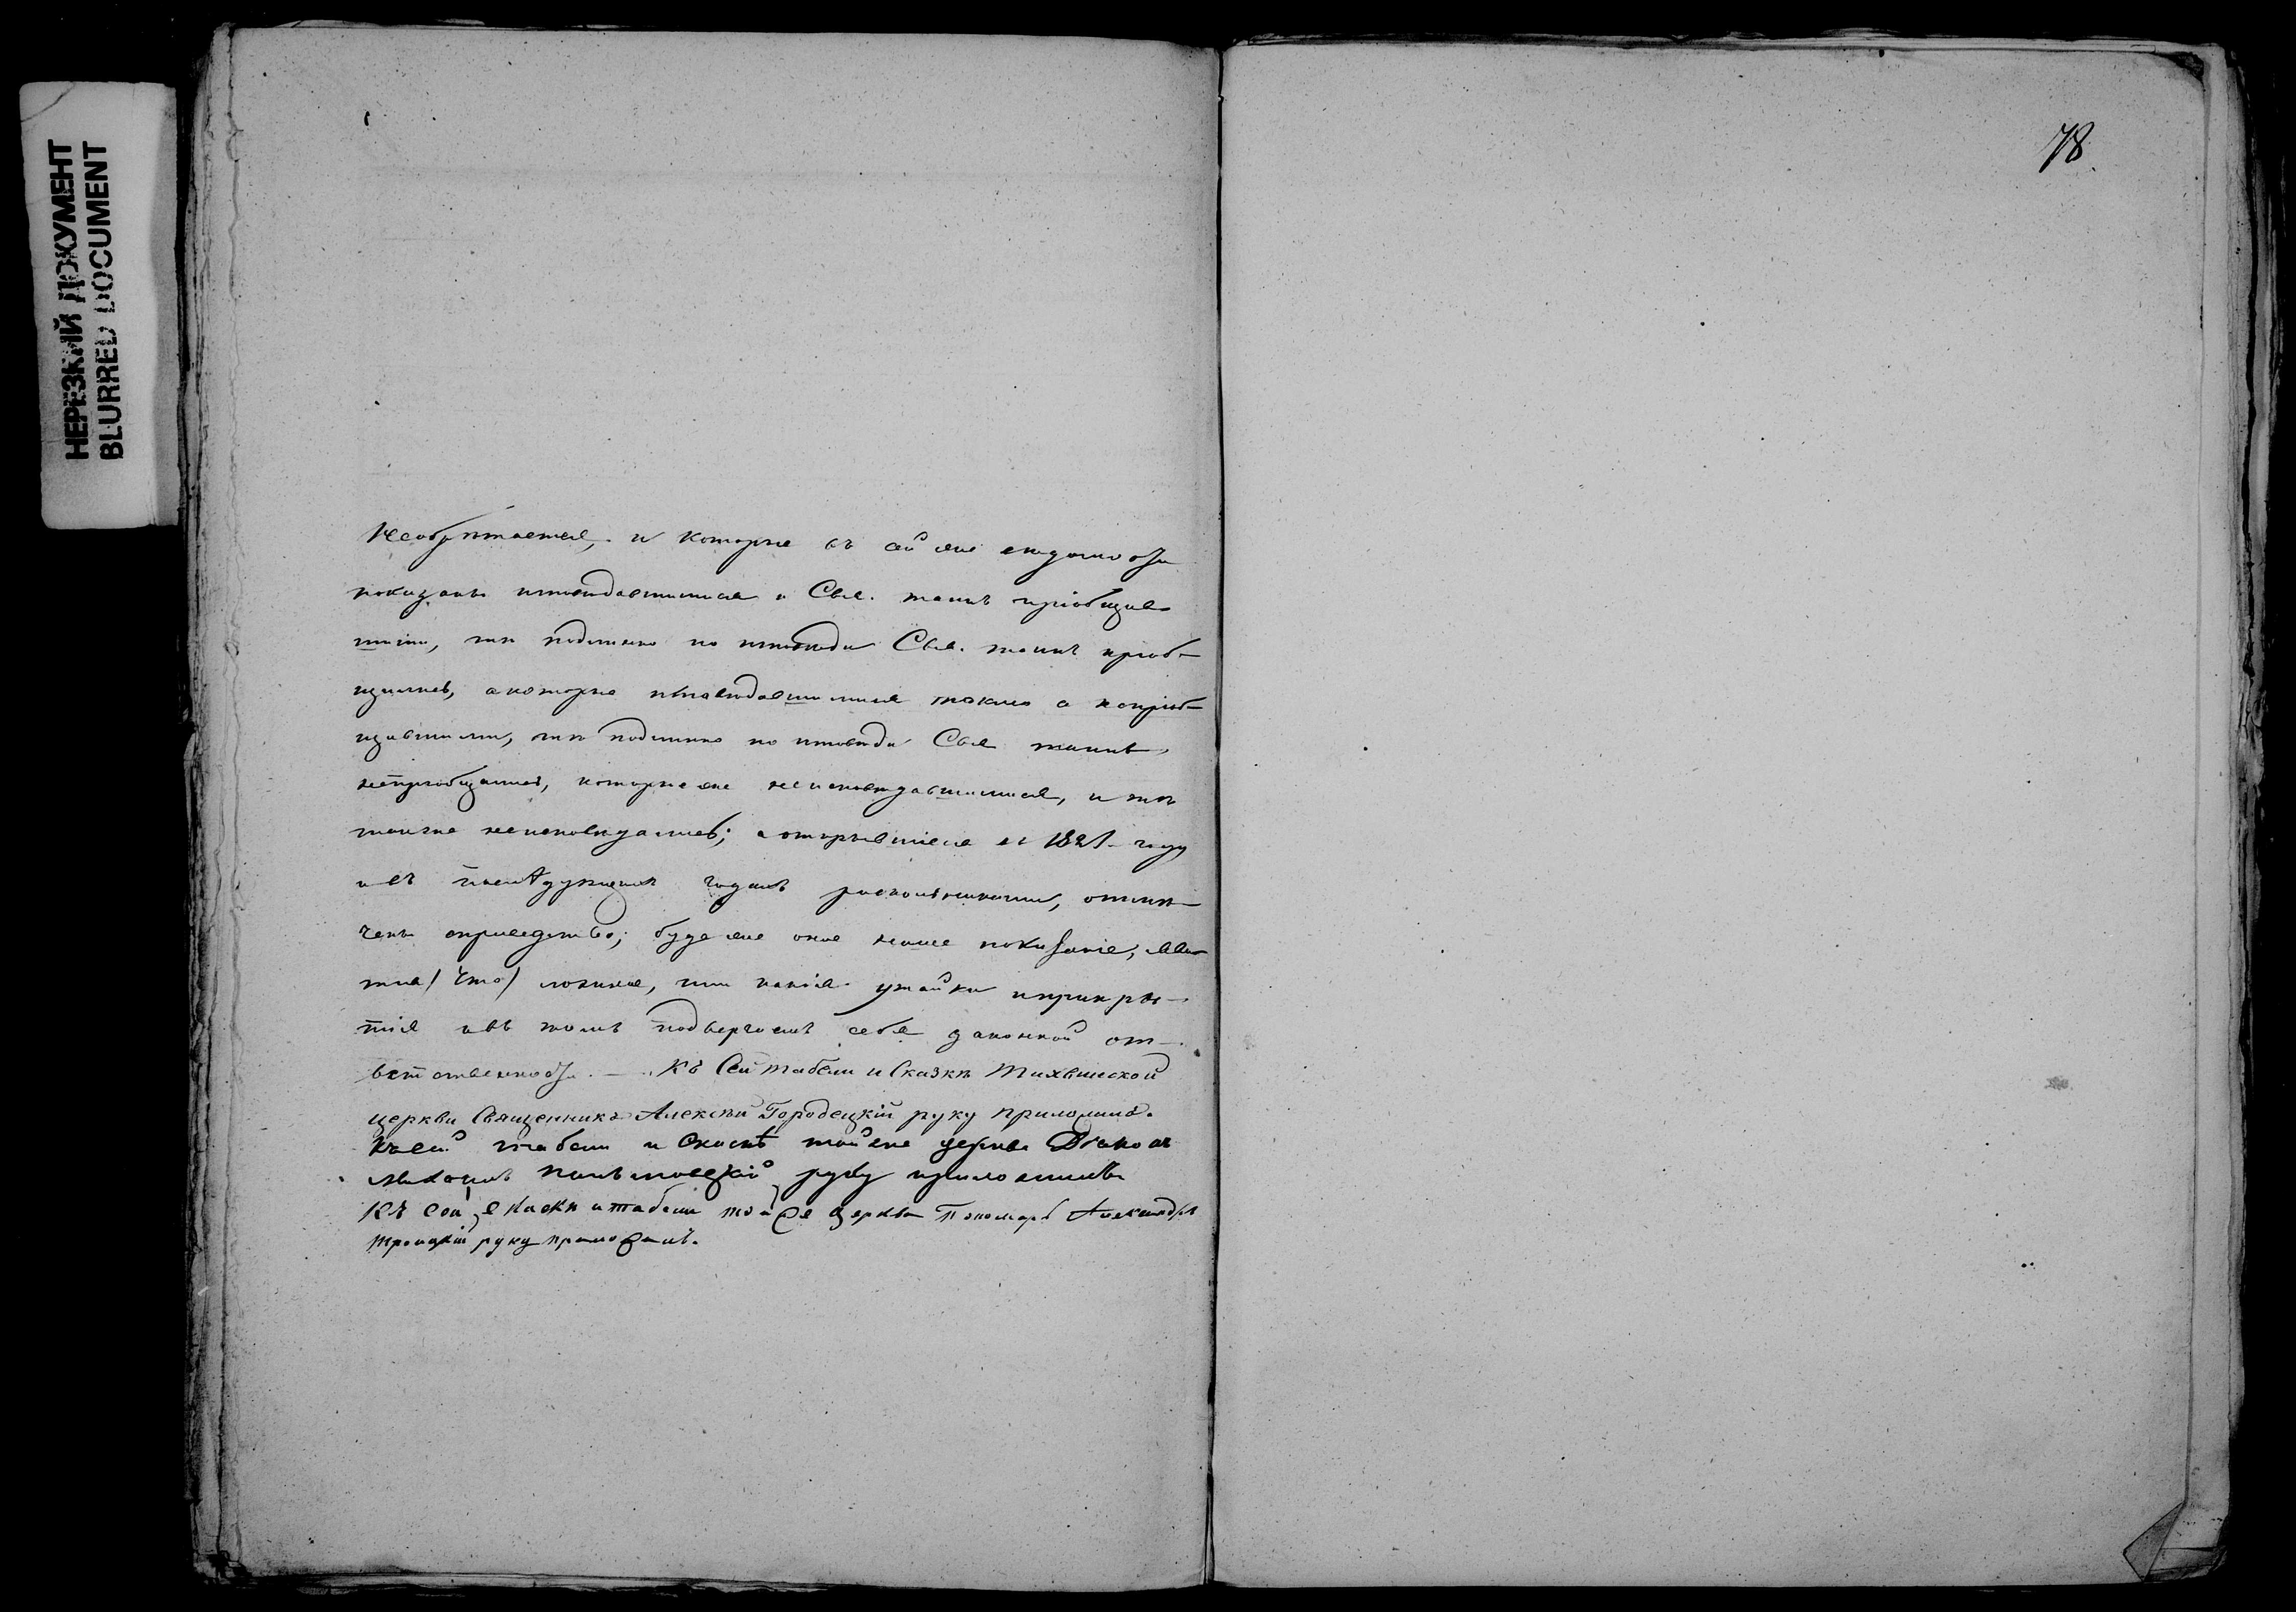 НЕРЕЗКИЙ ДОКУМЕНТ
BLURRED DOCUMENT
78
необрѣтается, и которые въ сей же вѣдомости
показаны исповѣдавшимися и Свя. таинъ пріобщив
шими, тѣ подлинно по исповѣди Свя. таинъ пріоб-
щились, а которые исповѣдавшимися токмо а непріоб-
щившими, тѣ подлинно по исповѣди Свя таинъ
непріобщались, которые же неисповѣдавшимися, и тѣ
точно неисповѣдались; открывшіеся въ 1821 году
и въ послѣдующихъ годахъ раскольниками, отмѣ-
чены справедливо; буде же оное наше показаніе, явит
ся / что / ложное, или какіе утайки и прикры-
тіе и въ томъ подвергаемъ себя законной от-
вѣтственности. — Къ Сей табели и Сказкѣ Тихвинской
церкви Священникъ Алексѣй Городецкій руку приложилъ.
Къ сей табели и Скаскѣ той же церкви Діаконъ
руку приложилъ
Къ сей скаски и табели той же церкви Пономарь Александръ
Троицкій руку приложилъ.